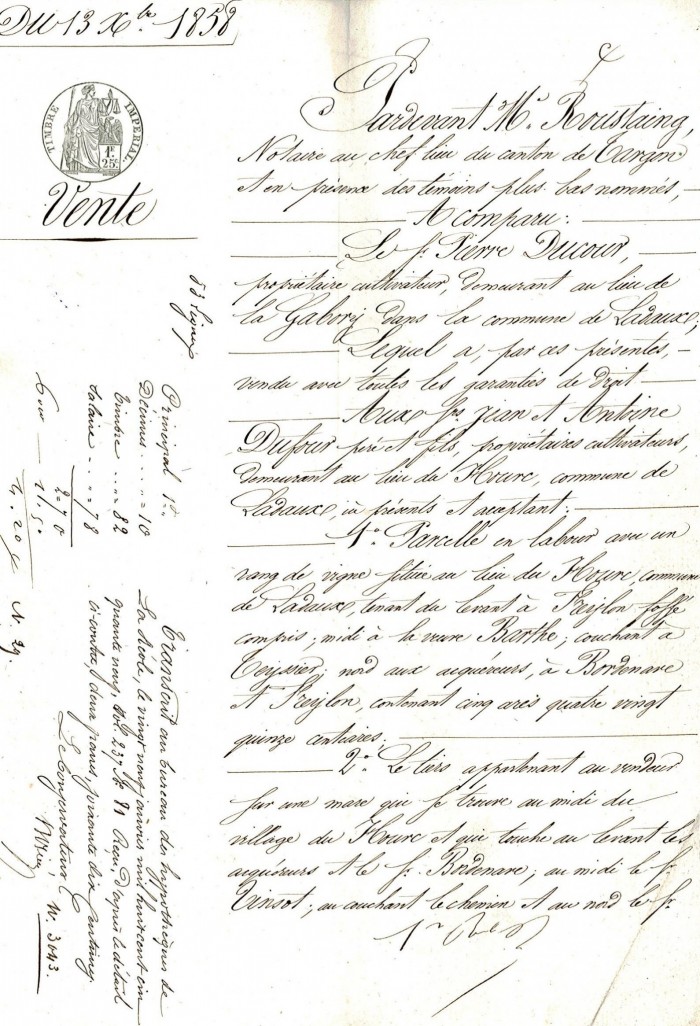 Du 13 Xbre 1858
TIMBRE IMPERIAL
1F.
25C.
Vente
Pardevant Me. Roustaing
Notaire au chef lieu du canton de Targon
et en présence des témoins plus bas nommés,
A comparu:
Le sr. Pierre Ducour,
propriétaire cultivateur, demeurant au lieu de
la Gabory dans la commune de Ladaux;
Lequel a, par ces présentes,
vendu avec toutes les garanties de droit
Aux srs. Jean et Antoine
Dufour père et fils, propriétaires cultivateurs,
demeurant au lieu du Hourc, commune de
Ladaux, ici présents et acceptant:
1o. Parcelle en labour avec un
rang de vigne située au lieu du Hourc, commune
de Ladaux, tenant du levant à Freylon fossé
compris; midi à la veuve Barthe; couchant à
Teyssier; nord aux acquéreurs, à Bordenave
et Freylon, contenant cinq ares quatre vingt
quinze centiares.
2o. Le tiers appartenant au vendeur
sur une mare qui se trouve au midi du
village du Hourc et qui touche au levant les
acquéreurs et le sr. Bordenave; au midi le sr.
Vinsot; au couchant le chemin et au nord le sr.
Principal 1"
Décimes 10
Timbre 82
Salaire 78
2=70
Transcrit au bureau des hypothèques de
La Réole, le vingt neuf janvier mil huit cent cin
quante neuf, vol 237 No 81 Reçu d'après le détail
ci contre, deux francs, soixante dix centimes
Le Conservateur
N. 29.
No. 3043.